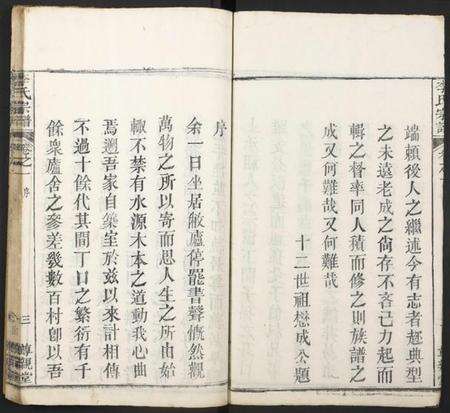 端賴後人之繼述今有志者趂典型
之未遠老成之尚存不吝己力起而
輯之督率同人積而修之則族譜之
成又何難哉又何難哉
十二世祖懋成公題
序
余一日坐居敝廬停罷書聲慨然觀
萬物之所以寄而思人生之所由始
輒不禁有水源木本之道動我心曲
焉遡吾家自築室於茲以來計相傳
不過十餘代其間丁口之繁衍有千
餘眾廬舍之參差幾數百村卽以吾
李氏宗譜
卷之一
序
三
尊親堂
李氏宗譜